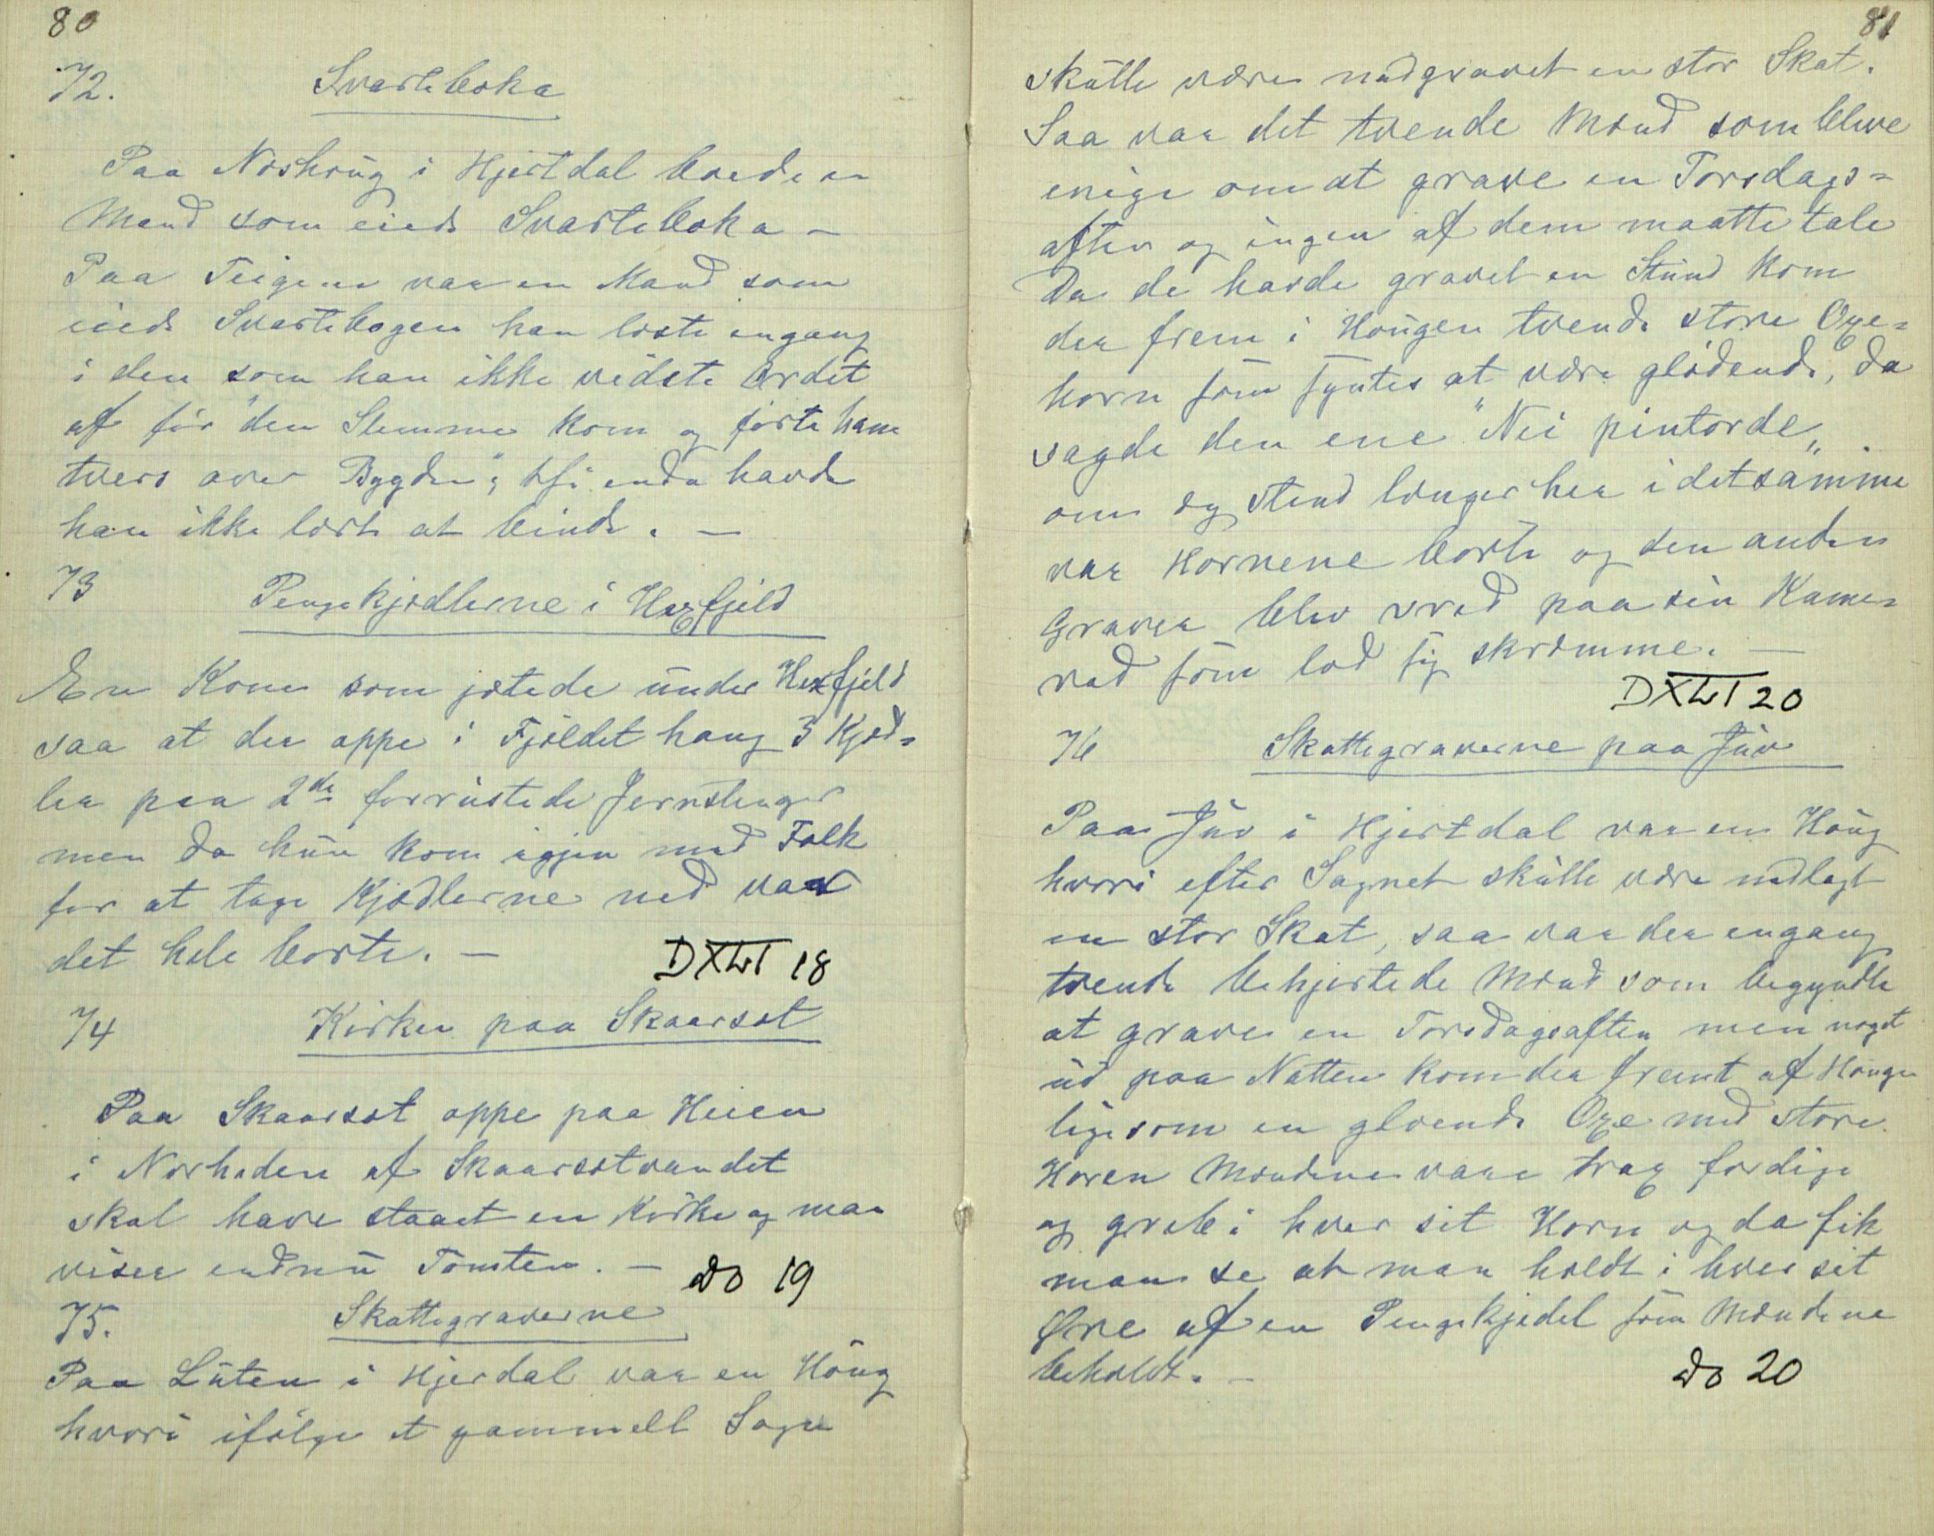 80
72.
Svarteboka
Paa Noshaug i Hjertdal boede en
Mand som eiede Svarteboka —
Paa Teigene var en Mand som
eiede Svartebogen han læste engang
i den som han ikke vidste Ordet
af før "den Slemme kom og førte ham
tvers over Bygden", thi enda havde
han ikke lært at binde. —
73
Pengekjedlerne i Hexfjeld
En Kone som jætede under Hexfjeld
saa at der oppe i Fjeldet hang 3 Kjed-
ler paa 2de forrustede Jernstenger
men da hun kom igjen med Folk
for at tage Kjedlerne ned var
det hele borte. —
DXLI 18
74
Kirken paa Skaarsæt
Paa Skaarsæt oppe paa Heien
i Nærheden af Skaarsætvandet
skal have staaet en Kirke og man
viser endnu Tomten. —
Do 19
75.
Skattegraverne
Paa Luten i Hjerdal var en Houg
hvori ifølge et gammelt Sagn
81
skulle være nedgravet en stor Skat.
Saa var det tvende Mænd som bleve
enige om at grave en Torsdags-
aften og ingen af dem maatte tale
Da de havde gravet en Stund kom
der frem i Hougen tvende store Oxe-
horn som syntes at være glødende, da
sagde den ene "Nei pintorde„
om eg stend længer her i detsamme
var Hornene borte og den anden
Graver blev vred paa sin Kame-
rad som lod sig skræmme. —
DXLI 20
76
Skattegraverne paa Juv
Paa Juv i Hjertdal var en Houg
hvori efter Sagnet skulle være nedlagt
en stor Skat, saa var der engang
tvende behjertede Mænd som begyndte
at grave en Torsdagsaften men noget
ud paa Natten kom der fremt af Hougen
ligesom en gloende Oxe med store
Horen Mændene vare trax færdige
og greb i hver sit Horn og da fik
man se at man holdt i hver sit
Øre af en Pengekjedel som Mændene
beholdt. —
Do 20